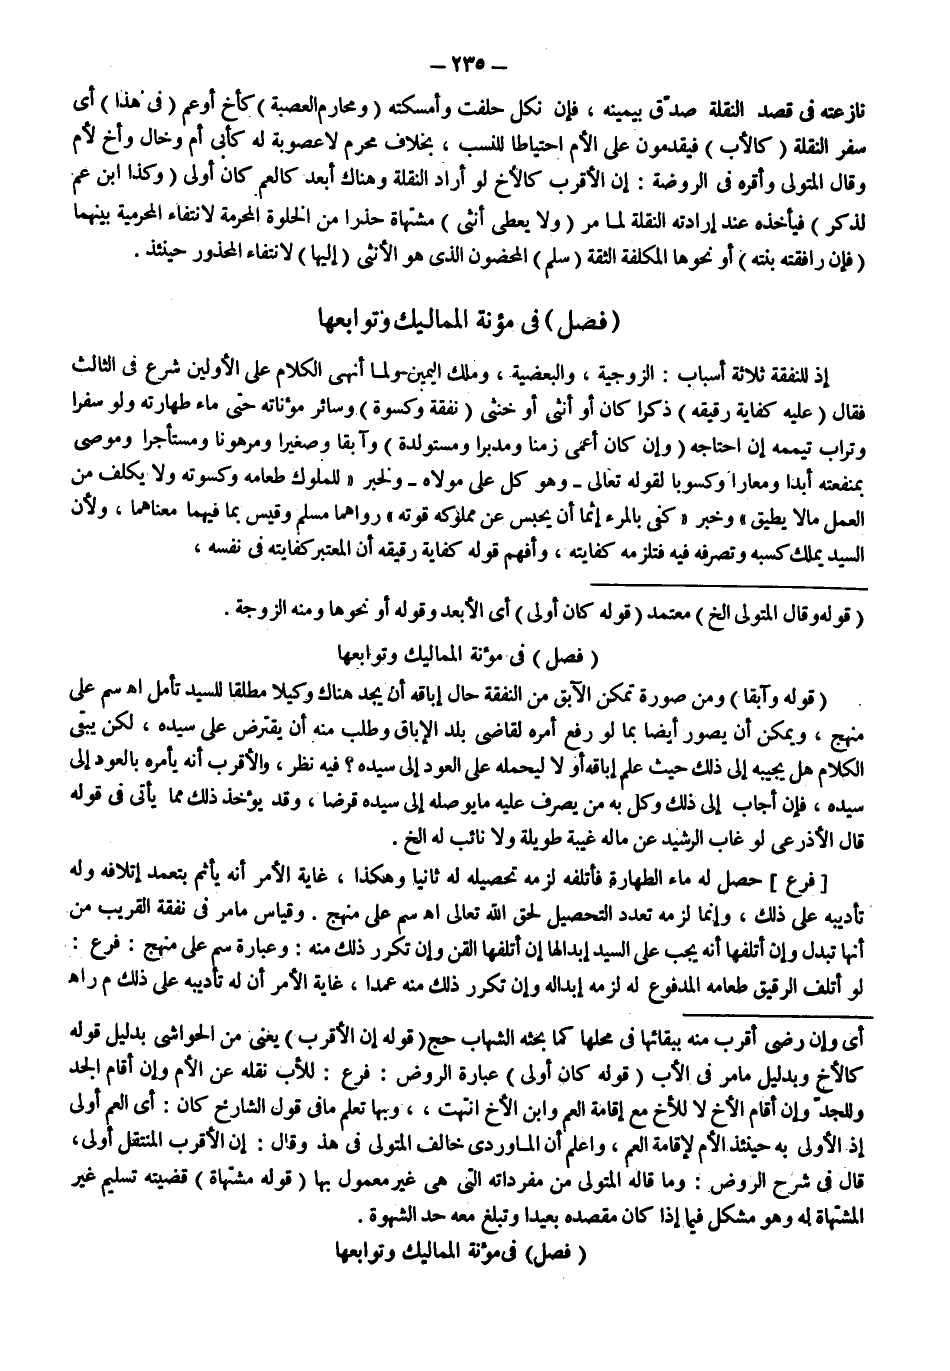 – ٢٣٥ –
نازعته فى قصد النقلة صدّق بيمينه ، فإن نكل حلفت وأمسكته ( ومحارم العصبة ) كأخ أوعم ( فى هذا ) أى
سفر النقلة ( كالأب ) فيقدمون على الأم احتياطا للنسب ، بخلاف محرم لاعصوبة له كأبى أم وخال وأخ لأم
وقال المتولى وأقره فى الروضة : إن الأقرب كالأخ لو أراد النقلة وهناك أبعد كالعم كان أولى ( وكذا ابن عم
لذكر ) فيأخذه عند إرادته النقلة لما مر ( ولا يعطى أنثى ) مشتهاة حذرا من الخلوة المحرمة لانتفاء المحرمية بينهما
( فإن رافقته بنته ) أو نحوها المكلفة الثقة ( سلم ) المحضون الذى هو الأنثى ( إليها ) لانتفاء المحذور حينئذ .
( فصل ) فى مؤنة المماليك وتوابعها
إذ للنفقة ثلاثة أسباب : الزوجية ، والبعضية ، وملك اليمين ولما أنهى الكلام على الأولين شرع فى الثالث
فقال ( عليه كفاية رقيقه ) ذكرا كان أو أنثى أو خنثى ( نفقة وكسوة ) وسائر مؤناته حتى ماء طهارته ولو سفرا
وتراب تيممه إن احتاجه ( وإن كان أعمى زمنا ومدبرا ومستولدة ) وآبقا وصغيرا ومرهونا ومستأجرا وموصى
بمنفعته أبدا ومعارا وكسوبا لقوله تعالى ـ وهو كل على مولاه ـ ولخبر « للملوك طعامه وكسوته ولا يكلف من
العمل مالا يطيق » وخبر « كفى بالمرء إثما أن يحبس عن مملوكه قوته » رواهما مسلم وقيس بما فيهما معناهما ، ولأن
السيد يملك كسبه وتصرفه فيه فتلزمه كفايته ، وأفهم قوله كفاية رقيقه أن المعتبر كفايته فى نفسه ،
( قوله وقال المتولى الخ ) معتمد ( قوله كان أولى ) أى الأبعد وقوله أو نحوها ومنه الزوجة .
( فصل ) فى مؤنة المماليك وتوابعها
( قوله وآبقا ) ومن صورة تمكن الآبق من النفقة حال إباقه أن يجد هناك وكيلا مطلقا للسيد تأمل اهـ سم على
منهج ، ويمكن أن يصور أيضا بما لو رفع أمره لقاضى بلد الإباق وطلب منه أن يقترض على سيده ، لكن يبقى
الكلام هل يجيبه إلى ذلك حيث علم إباقه أو لا ليحمله على العود إلى سيده ؟ فيه نظر ، والأقرب أنه يأمره بالعود إلى
سيده ، فإن أجاب إلى ذلك وكل به من يصرف عليه مايوصله إلى سيده قرضا ، وقد يؤخذ ذلك مما يأتى فى قوله
قال الأذرعى لو غاب الرشيد عن ماله غيبة طويلة ولا نائب له الخ .
[ فرع ] حصل له ماء الطهارة فأتلفه لزمه تحصيله له ثانيا وهكذا ، غاية الأمر أنه يأثم بتعمد إتلافه وله
تأديبه على ذلك ، وإنما لزمه تعدد التحصيل لحق الله تعالى اهـ سم على منهج . وقياس مامر فى نفقة القريب من
أنها تبدل وإن أتلفها أنه يجب على السيد إبدالها إن أتلفها القن وإن تكرر ذلك منه : وعبارة سم على منهج : فرع :
لو أتلف الرقيق طعامه المدفوع له لزمه إبداله وإن تكرر ذلك منه عمدا ، غاية الأمر أن له تأديبه على ذلك م ر اهـ
أى وإن رضى أقرب منه ببقائها فى محلها كما بحثه الشهاب حج ( قوله إن الأقرب ) يعنى من الحواشى بدليل قوله
كالأخ وبدليل مامر فى الأب ( قوله كان أولى ) عبارة الروض : فرع : للأب نقله عن الأم وإن أقام الجد
وللجدّ وإن أقام الأخ لا للأخ مع إقامة العم وابن الأخ انتهت ، ، وبها تعلم مافى قول الشارح كان : أى العم أولى
إذ الأولى به حينئذ الأم لإقامة العم ، واعلم أن الماوردى خالف المتولى فى هذ وقال : إن الأقرب المنتقل أولى ،
قال فى شرح الروض : وما قاله المتولى من مفرداته التى هى غير معمول بها ( قوله مشتهاة ) قضيته تسليم غير
المشتهاة له وهو مشكل فيما إذا كان مقصده بعيدا وتبلغ معه حد الشهوة .
( فصل ) فى مؤنة المماليك وتوابعها